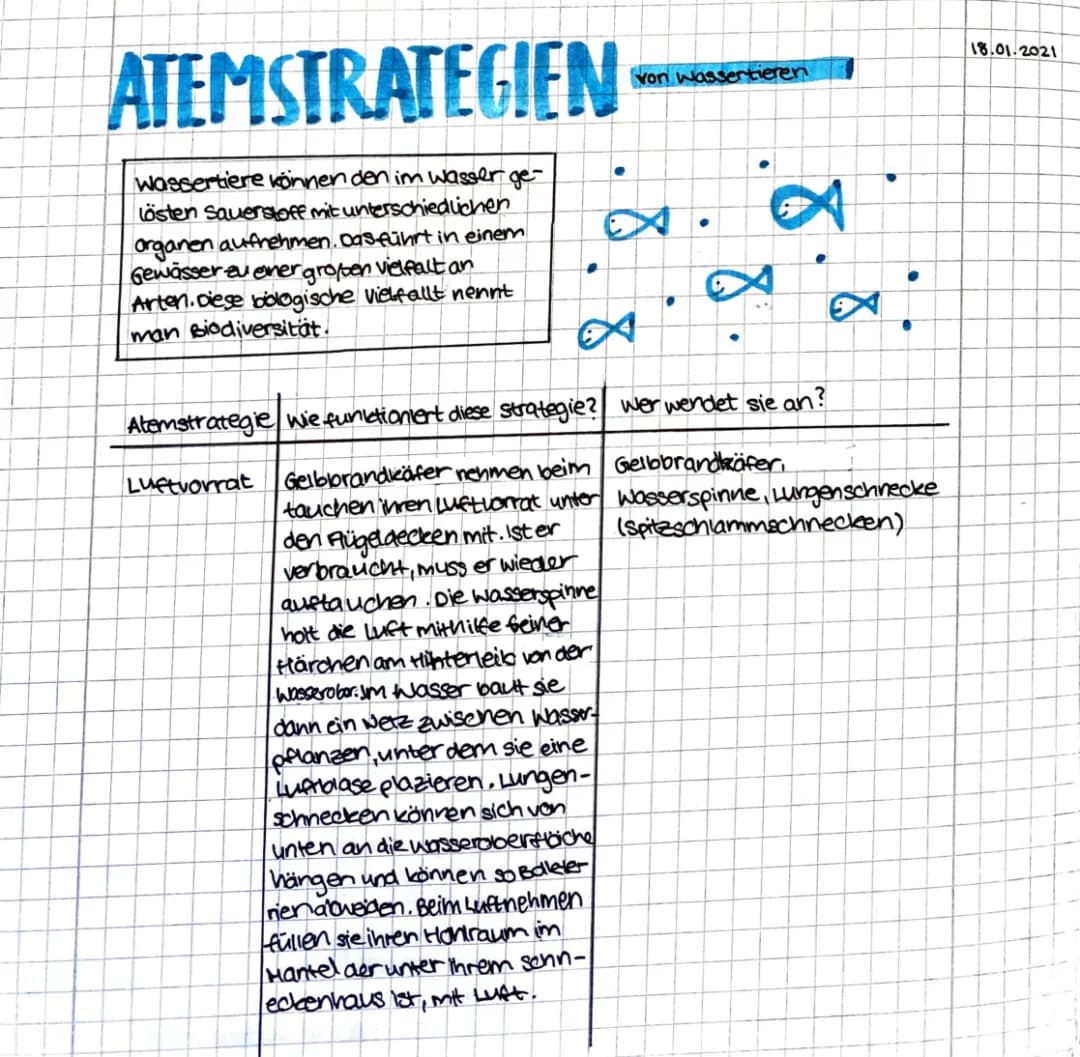 18.01.2021
ATEMSTRATEGIEN von Wassertieren
Wassertiere können den im Wasser ge-
lösten Sauerstoff mit unterschiedlichen
organen aufnehmen. Das führt in einem
Gewässer zu einer großen Vielfalt an
Arten. Diese biologische Vielfallt nennt
man Biodiversität.
Atemstrategie | Wie funktioniert diese Strategie? | Wer wendet sie an?
Luftvorrat
Gelbbrandkäfer nehmen beim
tauchen ihren Luftvorrat unter
den Flügeldecken mit. Ist er
verbraucht, muss er wieder
auftauchen. Die Wasserspinne
holt die Luft mithilfe feiner
Härchen am Hinterleib von der
Wasserober. Im Wasser baut sie
dann ein Netz zwischen Wasser-
pflanzen, unter dem sie eine
Luftblase plazieren. Lungen-
schnecken können sich von
unten an die Wasseroberfläche
hängen und können so
abweiden. Beim Luftnehmen
füllen sie ihren Hohlraum im
Mantel der unter ihrem schn-
eckenhaus ist, mit Luft.
Gelbbrandkäfer,
Wasserspinne, Lungenschnecke
(Spitzschlammschnecken)